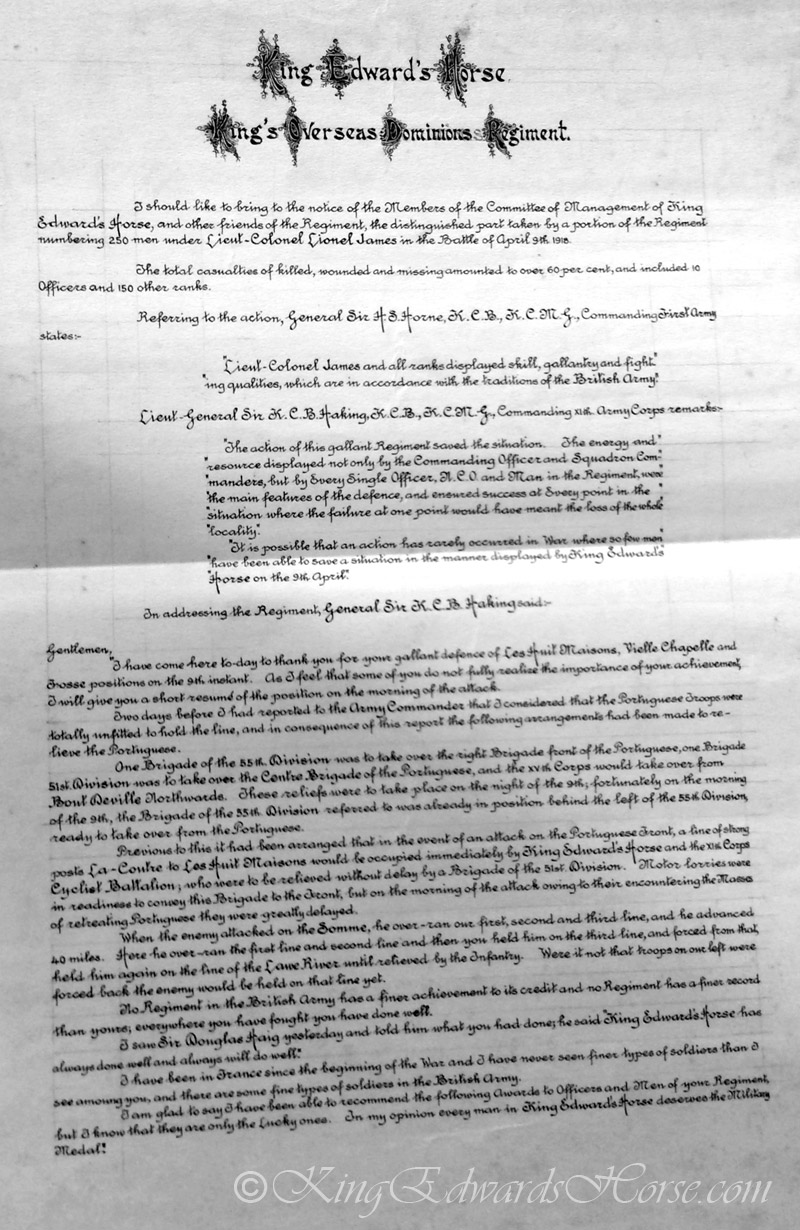 King Edward's Horse.
King's Overseas Dominions Regiment.
I should like to bring to the notice of the Members of the Committee of Management of King
Edward's Horse, and other friends of the Regiment, the distinguished part taken by a portion of the Regiment
numbering 250 men under Lieut-Colonel Lionel James in the Battle of April 9th 1918.
The total casualties of killed, wounded and missing amounted to over 60 per cent, and included 10
Officers and 150 other ranks.
Referring to the action, General Sir H.S. Horne, K.C.B., K.C.M.G., Commanding First Army
states:-
"Lieut-Colonel James and all ranks displayed skill, gallantry and fight"
"ing qualities, which are in accordance with the traditions of the British Army."
Lieut-General Sir R.C.B. Haking, K.C.B., K.C.M.G., Commanding XIth. Army Corps remarks:-
"The action of this gallant Regiment saved the situation. The energy and"
"resource displayed not only by the Commanding Officer and Squadron Com-"
"manders, but by Every Single Officer, N.C.O. and Man in the Regiment, were"
"the main features of the defence, and ensured success at Every point in the"
"situation where the failure at one point would have meant the loss of the whole"
"locality."
"It is possible that an action has rarely occurred in War where so few men"
"have been able to save a situation in the manner displayed by King Edward's"
"Horse on the 9th April."
In addressing the Regiment, General Sir R.C.B. Haking said:-
Gentlemen,
"I have come here to-day to thank you for your gallant defence of Les Huit Maisons, Vielle Chapelle and
Fosse positions on the 9th instant. As I feel that some of you do not fully realize the importance of your achievement,
I will give you a short resumé of the position on the morning of the attack.
Two days before I had reported to the Army Commander that I considered that the Portuguese Troops were
totally unfitted to hold the line, and in consequence of this report the following arrangements had been made to re-
lieve the Portuguese.
One Brigade of the 55th. Division was to take over the right Brigade front of the Portuguese, one Brigade
51st. Division was to take over the Centre Brigade of the Portuguese, and the XVth Corps would take over from
Bout Deville Northwards. These reliefs were to take place on the night of the 9th; fortunately on the morning
of the 9th, the Brigade of the 55th Division referred to was already in position behind the left of the 55th Division,
ready to take over from the Portuguese.
Previous to this it had been arranged that in the event of an attack on the Portuguese Front, a line of strong
posts La-Coutre to Les Huit Maisons would be occupied immediately by King Edward's Horse and the XIth Corps
Cyclist Battalion; who were to be relieved without delay by a Brigade of the 51st. Division. Motor lorries were
in readiness to convey this Brigade to the Front, but on the morning of the attack owing to their encountering the Masses
of retreating Portuguese they were greatly delayed.
When the enemy attacked on the Somme, he over-ran our first, second and third line, and he advanced
40 miles. Here he over-ran the first line and second line and then you held him on the third line, and forced from that,
held him again on the line of the Lawe River until relieved by the Infantry. Were it not that troops on our left were
forced back the enemy would be held on that line yet.
No Regiment in the British Army has a finer achievement to its credit and no Regiment has a finer record
than yours; everywhere you have fought you have done well.
I saw Sir Douglas Haig yesterday and told him what you had done; he said "King Edward's Horse has
always done well and always will do well."
I have been in France since the beginning of the War and I have never seen finer types of soldiers than I
see amoung you, and there are some fine types of soldiers in the British Army.
I am glad to say I have been able to recommend the following Awards to Officers and Men of your Regiment,
but I know that they are only the Lucky ones. In my opinion every man in King Edward's Horse deserves the Military
Medal."
©KingEdwardsHorse.com